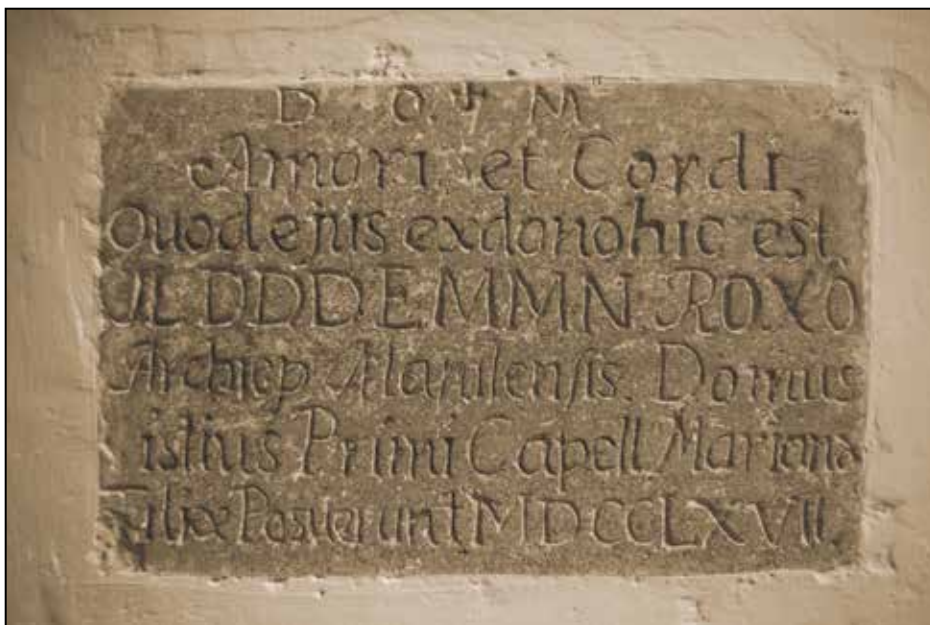 D O. M
Amori et Cordi
Quod ejus ex dono hic est
ILDDDEMMN ROXO
Archiep Manilensis Domus
istius Primi Capell Mariana
Filiæ Posuerunt MDCCLXVII